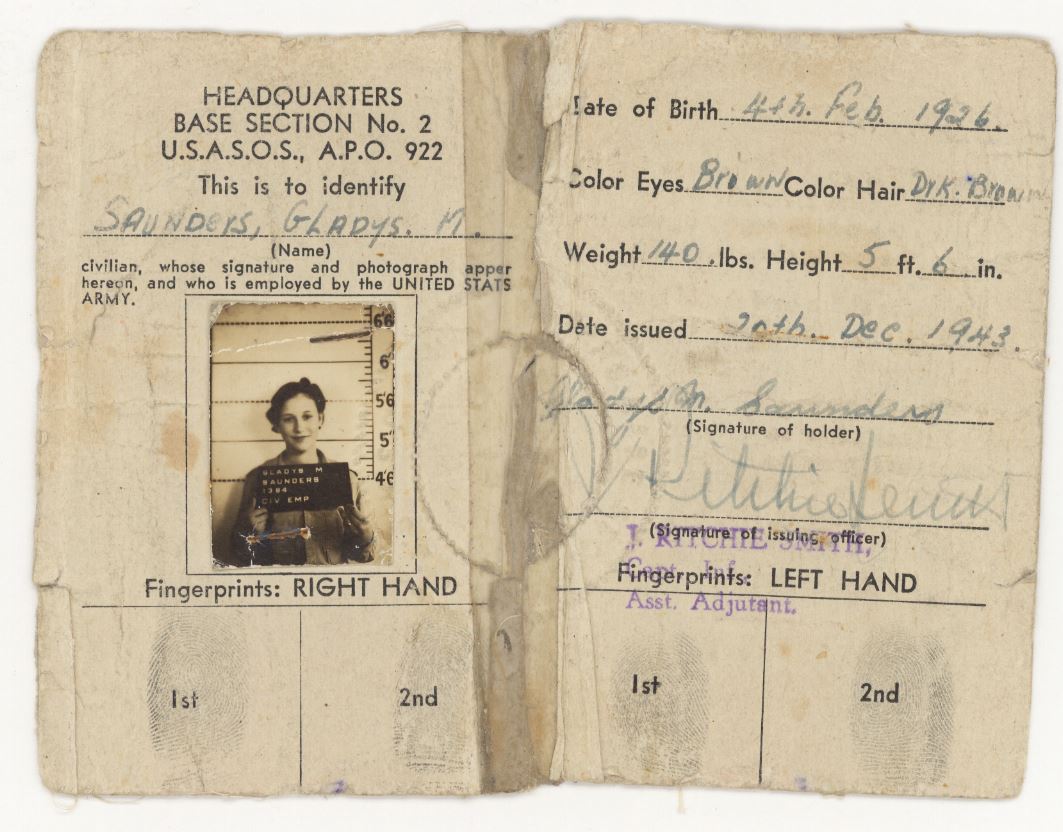 HEADQUARTERS
BASE SECTION No. 2
U.S.A.S.O.S., A.P.O. 922
This is to identify
SAUNDERS, GLADYS. M.
(Name)
civilian, whose signature and photograph apper
hereon, and who is employed by the UNITED STATS
ARMY.
66
6
56
5
46
GLADYS M
SAUNDERS
1384
CIV EMP
Fingerprints: RIGHT HAND
1st
2nd
Date of Birth 4th. Feb. 1926.
Color Eyes Brown Color Hair Drk. Brown
Weight 140 .lbs. Height 5 ft. 6 in.
Date issued Dec. 1943.
Gladys M. Saunders
(Signature of holder)
J Ritchie Smith
(Signature of issuing officer)
J. RITCHIE SMITH,
Capt. Inf.
Fingerprints: LEFT HAND
Asst. Adjutant.
1st
2nd